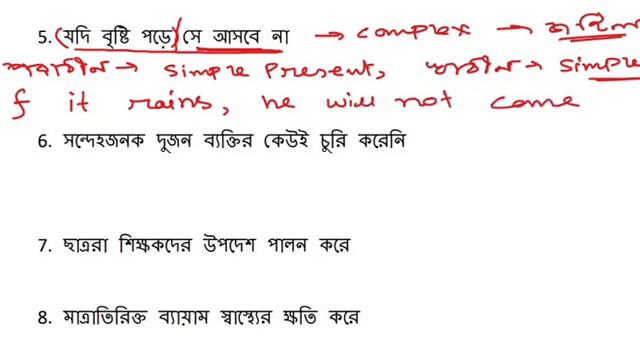 5. (যদি বৃষ্টি পড়ে) সে আসবে না → complex →
→ simple present, → simple
f it rains, he will not come
6. সন্দেহজনক দুজন ব্যক্তির কেউই চুরি করেনি
7. ছাত্ররা শিক্ষকদের উপদেশ পালন করে
8. মাত্রাতিরিক্ত ব্যায়াম স্বাস্থ্যের ক্ষতি করে